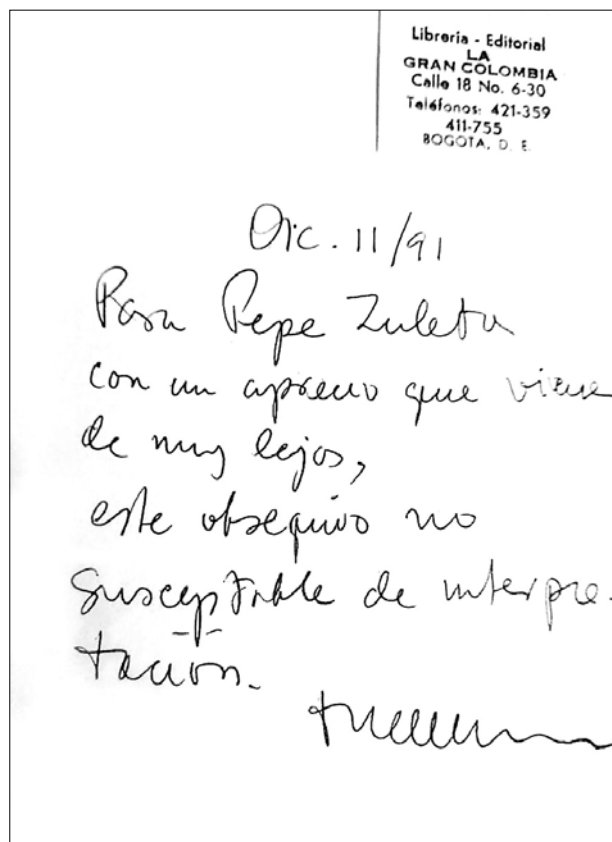 Librería - Editorial
LA
GRAN COLOMBIA
Calle 18 No. 6-30
Teléfonos: 421-359
411-755
BOGOTA, D. E.
Dic. 11/91
Para Pepe Zuleta
con un aprecio que viene
de muy lejos,
este obsequio no
susceptible de interpre-
tación.